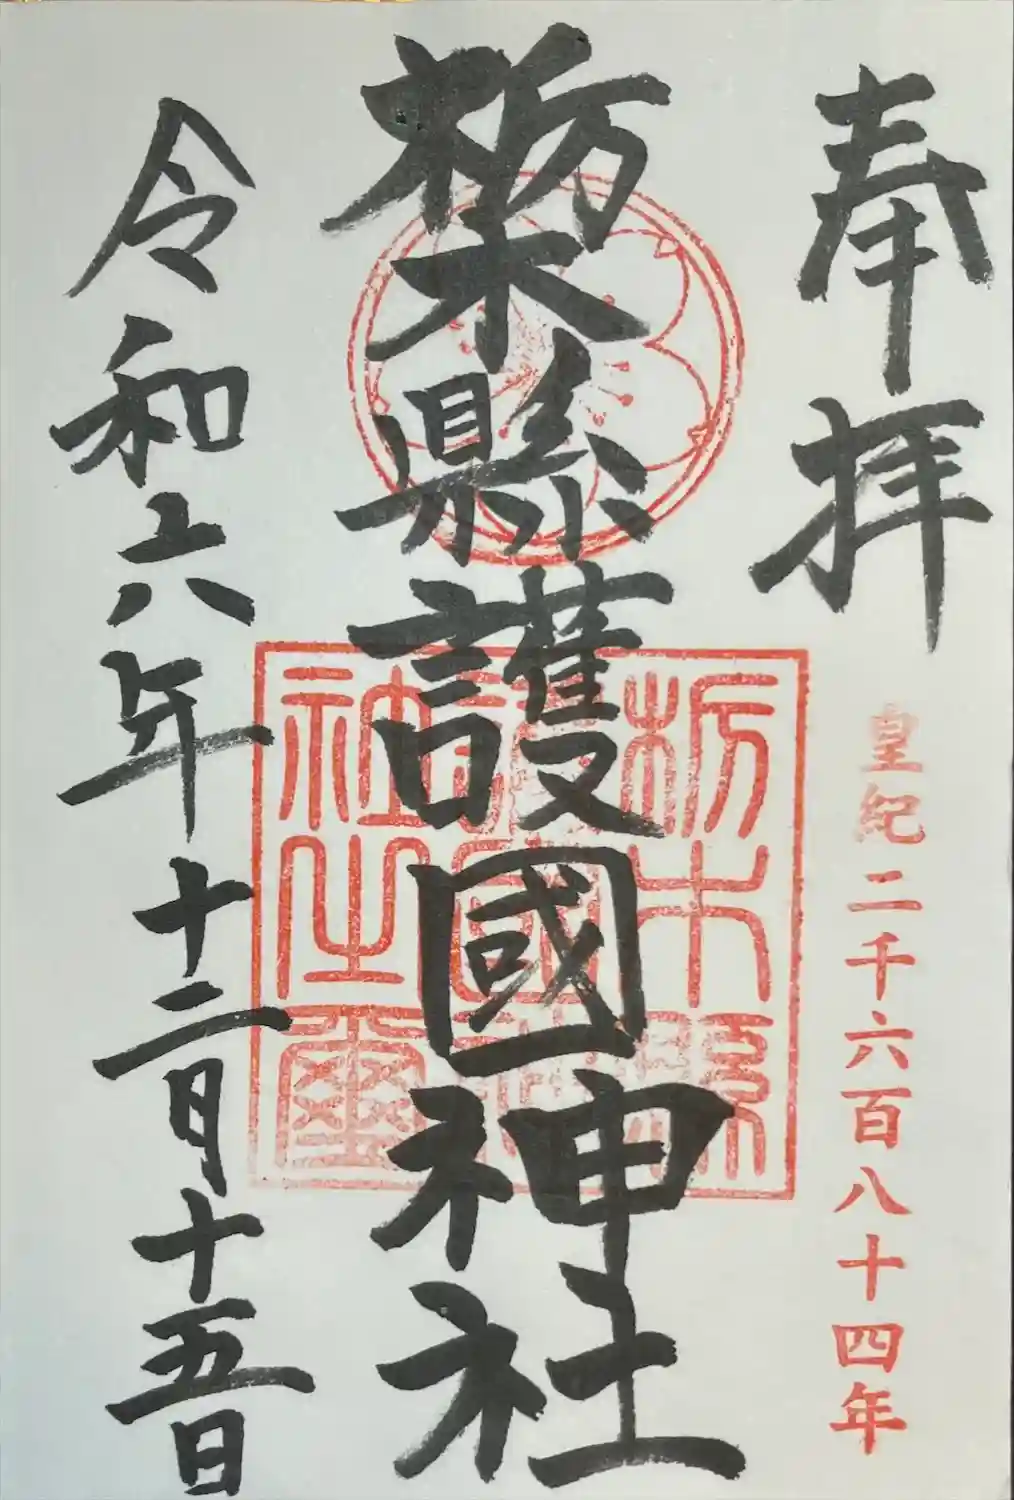 奉拝
皇紀二千六百八十四年
栃木縣護國神社
栃木縣護國神社之璽
令和六年十二月十五日